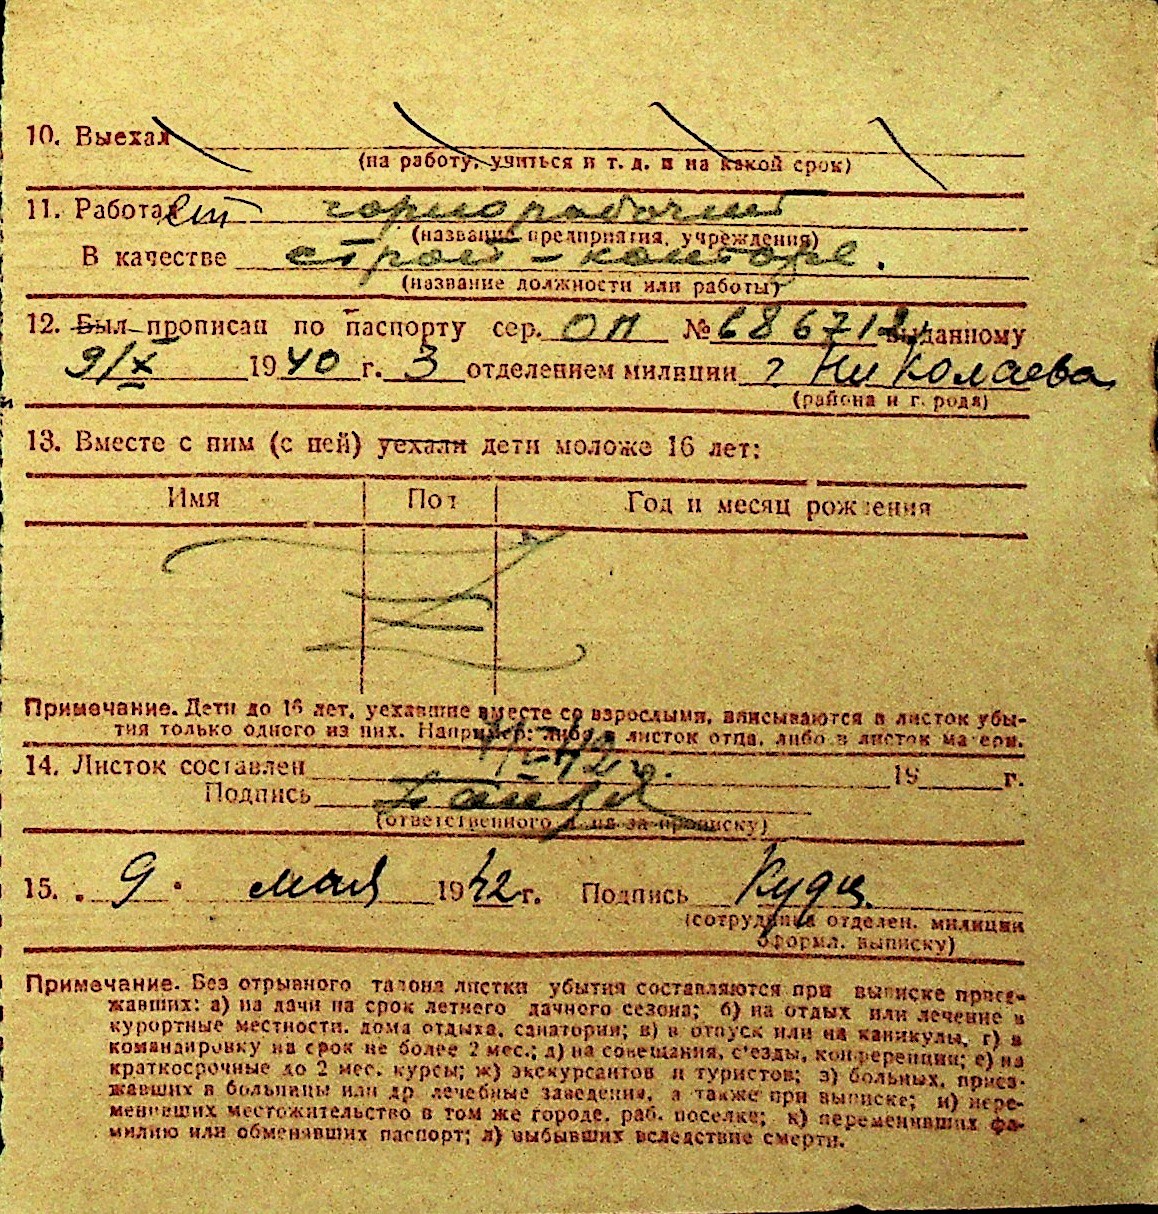 10. Выехал
(на работу, учиться и т. д. и на какой срок)
11. Работает горнорабочий
(название предприятия, учреждения)
В качестве строй-конторе.
(название должности или работы)
12. Был прописан по паспорту сер. ОП № 686712, выданному
9/X 1940 г. 3 отделением милиции г Николаева
(района и города)
13. Вместе с ним (с ней) уехали дети моложе 16 лет:
Имя Пол Год и месяц рождения
Примечание. Дети до 16 лет, уехавшие вместе со взрослыми, вписываются в листок убы-
тия только одного из них. Например: либо в листок отца, либо в листок матери.
14. Листок составлен 42 г. 19 г.
Подпись
(ответственного лица за прописку)
15. „ 9 " мая 1942 г. Подпись Кудц.
(сотрудника отделен. милиции
оформл. выписку)
Примечание. Без отрывного талона листки убытия составляются при выписке приез-
жавших: а) на дачи на срок летнего дачного сезона; б) на отдых или лечение в
курортные местности, дома отдыха, санатории; в) в отпуск или на каникулы, г) в
командировку на срок не более 2 мес.; д) на совещания, с'езды, конференции; е) на
краткосрочные до 2 мес. курсы; ж) экскурсантов и туристов; з) больных, приез-
жавших в больницы или др лечебные заведения, а также при выписке; и) пере-
менивших местожительство в том же городе, раб. поселке; к) переменивших фа-
милию или обменявших паспорт; л) выбывших вследствие смерти.